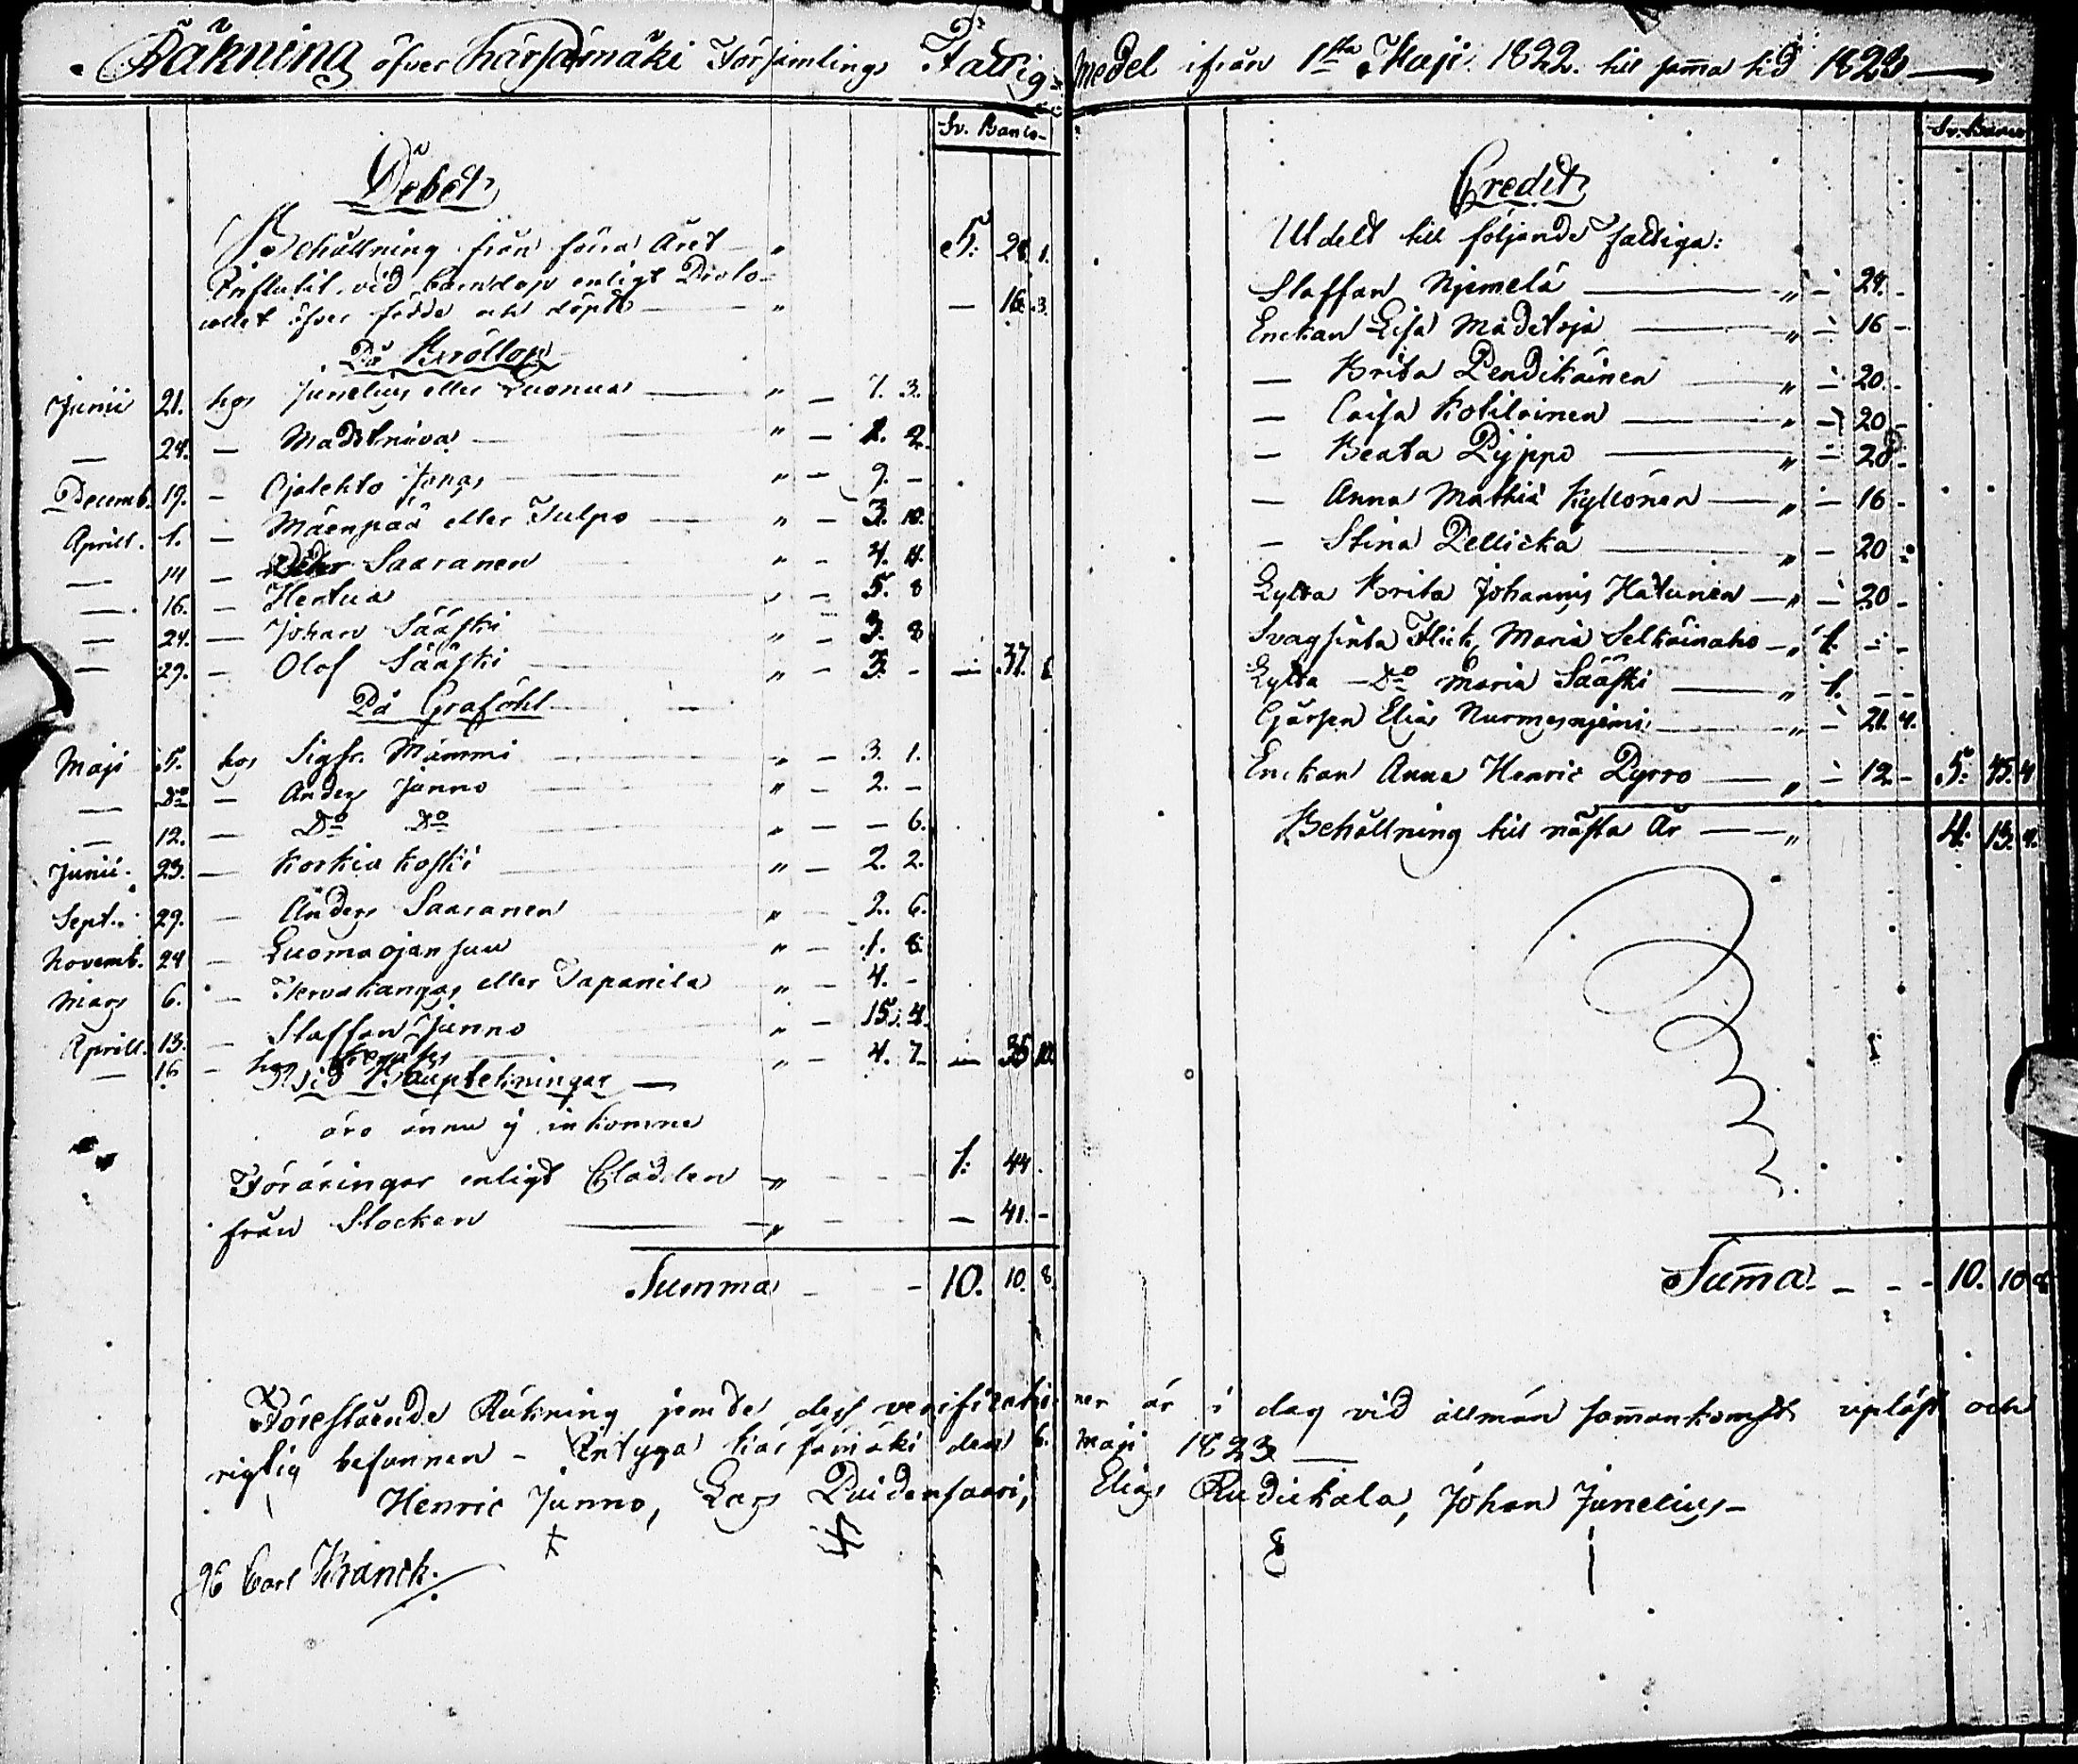 Räkning öfver Kärsämäki Församlings Fattig-Medel ifrån 1sta Maji 1822. till samma tid 1823
Sv. Banco
Debet
Behållning från förra Året „ 5. 28. 1.
Influtit vid barndop enligt Proto-
collet öfver födde och döpte „ — 16. 3.
På Bröllop
Junii 21. hos Junelius eller Luonua „ — 7. 3.
— 24. — Madetneva „ — 1. 2.
Decemb. 19. — Ojalehto Jonas „ — 9. —
Aprill. 1. — Mäenpää eller Tulpo „ — 3. 10.
— 14 — Saaranen „ — 4. 4.
— 16. — Hertua „ — 5. 8
— 24. — Johan Sääski „ — 3. 8
— 29. — Olof Sääski „ — 3. — — 37.
På Graföhl
Maji 5. hos Sigfr. Mämmi „ — 3. 1.
— Do — Anders Junno „ — 2. —
— 12. — Do Do „ — — 6.
Junii. 23. — Korkia koski „ — 2. 2.
Sept. 29. — Anders Saaranen „ — 2. 6.
Novemb. 24 — Luomaojan suu „ — 1. 8.
Mars 6. — Tervakangas eller Tapanila „ — 4. —
Aprill. 13. — Staffan Junno „ — 15. 4.
— 16 — hos „ — 4. 7. — 35 10.
Vid
äro ännu ej inkomne
Föräringar enligt Cladden „ 1: 44.
från Stocken „ — 41. —
Summa — — 10. 10. 8.
Sv. Banco
Credit
Utdelt till följande fattiga:
Staffan Njemelä „ — 24. —
Enckan Lisa Madetoja „ — 16 —
— Brita Pendikäinen „ — 20. —
— Caisa Kotilainen „ — 20 —
— Beata Pyjppo „ — 20 —
— Anna Mathia Kyllönen „ — 16 —
— Stina Pellicka „ — 20 —
Lytta Brita Johannis Hätunen „ — 20 —
Svagsinta Flick, Maria Selkäinaho „ 1. — —
Lytta — Do Maria Sääski „ 1. — —
Gossen Elias Nurmesnjemi „ — 21. 4.
Enckan Anna Henric Pyrro „ — 12 — 5: 45. 4
Behållning till nästa År — „ 4: 13. 4.
Summa — — — 10. 10 8
Förestående Räkning jemte dess verificationer är i dag vid allmän sammankomst upläst och
rigtig befunnen — Intyga Kärsämäki den 6. Maji 1823
Henric Junno, Lars Puidensaari, Elias Rudukala, Johan Junelius —
Carl Franck.